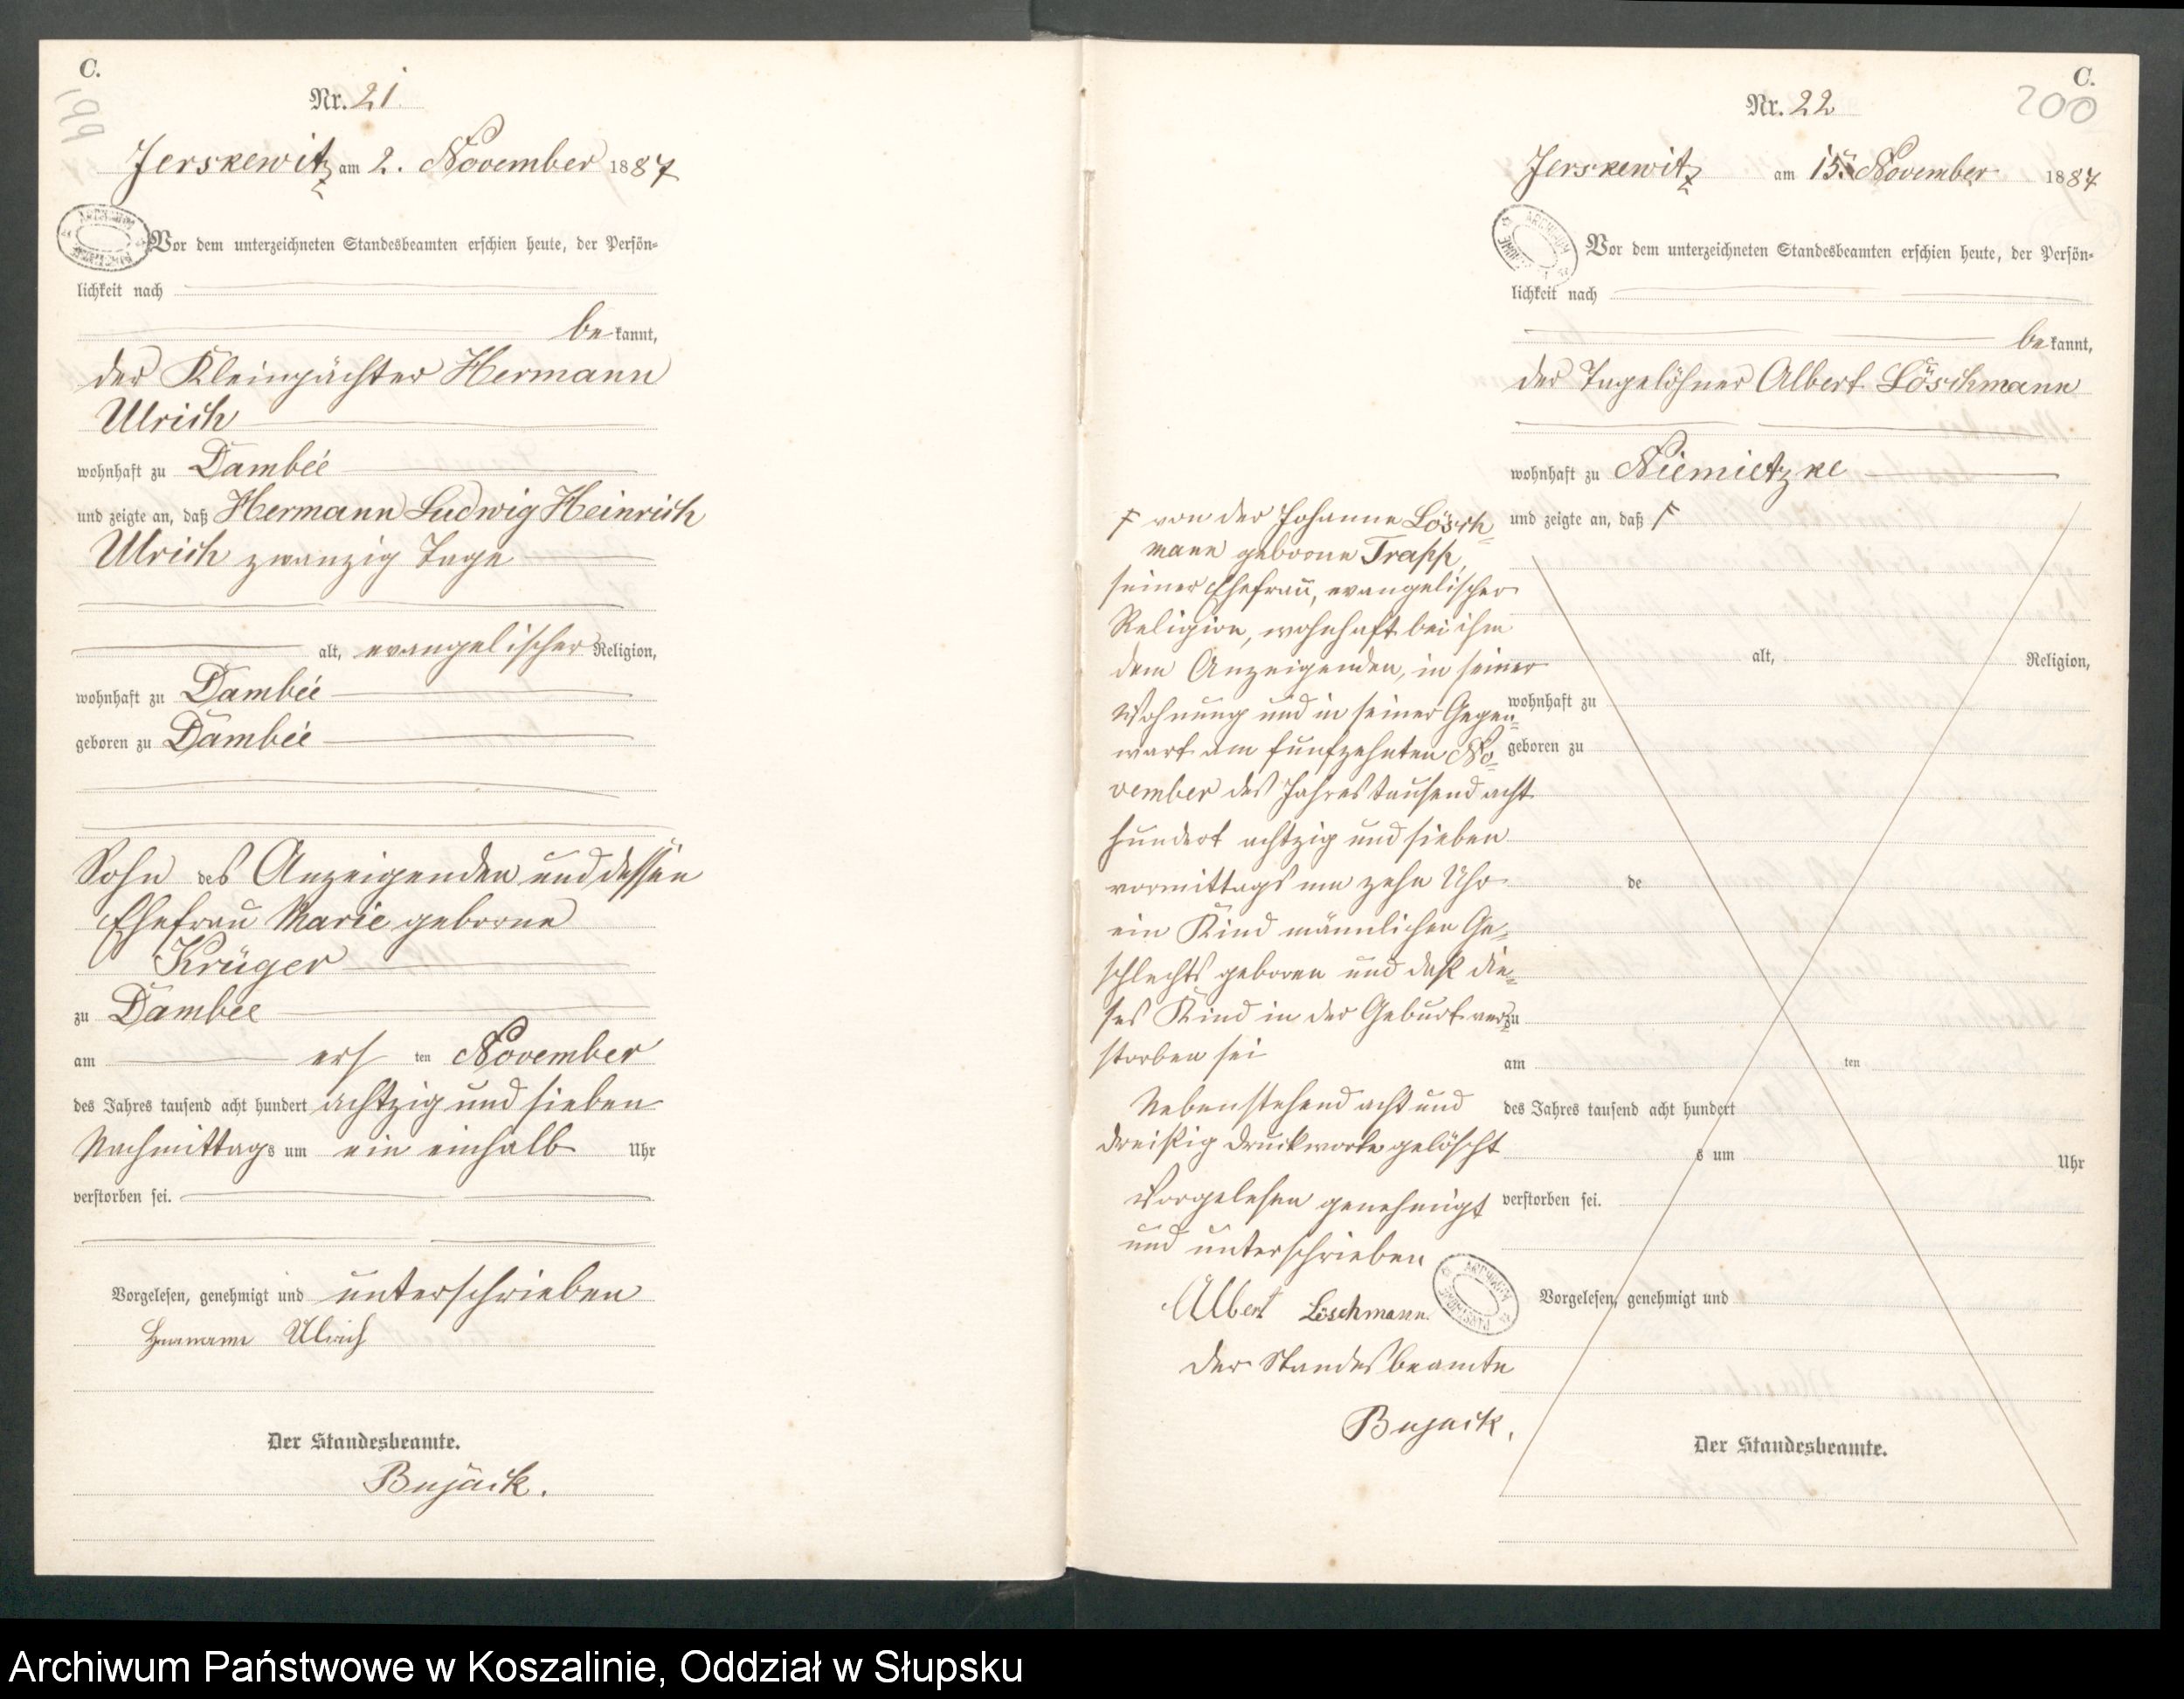 C.
199
Nr. 21.
Jerskewitz am 2. November 1887
Vor dem unterzeichneten Standesbeamten erschien heute, der Persön=
lichkeit nach
bekannt,
der Kleinpächter Hermann
Ulrich
wohnhaft zu Dambée
und zeigte an, daß Hermann Ludwig Heinrich
Ulrich zwanzig Tage
alt, evangelischer Religion,
wohnhaft zu Dambée
geboren zu Dambée
Sohn des Anzeigenden und dessen
Ehefrau Marie geborne
Krüger
zu Dambee
am ersten November
des Jahres tausend acht hundert achtzig und sieben
Nachmittags um ein einhalb Uhr
verstorben sei.
Vorgelesen, genehmigt und unterschrieben
Hermann Ulrich
Der Standesbeamte.
Bujack.
C.
200
Nr. 22
Jerskewitz am 15. November 1887
Vor dem unterzeichneten Standesbeamten erschien heute, der Persön=
lichkeit nach
bekannt,
der Tagelöhner Albert Löschmann
wohnhaft zu Niemietzke
und zeigte an, daß F
F von der Johanne Lösch=
mann geborne Trapp,
seiner Ehefrau, evangelischer
Religion, wohnhaft bei ihm
dem Anzeigenden, in seiner
Wohnung und in seiner Gegen=
wart am funfzehnten No=
vember des Jahres tausend acht
hundert achtzig und sieben
vormittags um zehn Uhr
ein Kind männlichen Ge=
schlechts geboren und daß die=
ses Kind in der Geburt ver=
storben sei
Nebenstehend acht und
dreißig Druckworte gelöscht
Vorgelesen genehmigt
und unterschrieben
Albert Löschmann.
Der Standesbeamte
Bujack.
alt, Religion,
wohnhaft zu
geboren zu
de
zu
am ten
des Jahres tausend acht hundert
s um Uhr
verstorben sei.
Vorgelesen, genehmigt und
Der Standesbeamte.
Archiwum Państwowe w Koszalinie, Oddział w Słupsku